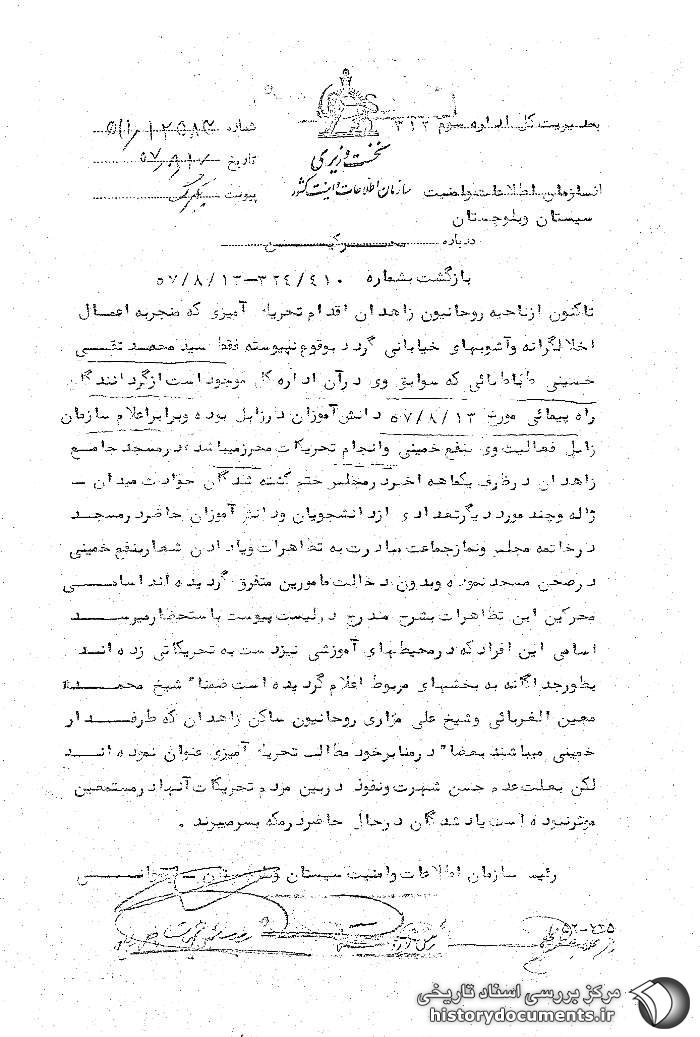 بمدیریت کل اداره سوم ۳۱۲
شماره ۵۱۱/۱۲۵۸۳
نخست وزیری
تاریخ
سازمان اطلاعات و امنیت کشور
پیوست
از سازمان اطلاعات و امنیت
سیستان و بلوچستان
درباره محرکین
بازگشت بشماره ۳۲۴/۴۱۰-۵۷/۸/۱۳
تاکنون از ناحیه روحانیون زاهدان اقدام تحریک آمیزی که منجر به اعمال
اخلالگرانه و آشوبهای خیابانی گردد بوقوع نپیوسته فقط سید محمد تقی
حسینی طباطبائی که سوابق وی در آن اداره کل موجود است از گردانندگان
راه پیمائی مورخ ۵۷/۸/۱۳ دانش‌آموزان در زابل بوده و برابر اعلام سازمان
زابل فعالیت وی بنفع خمینی و انجام تحریکات محرز میباشد در مسجد جامع
زاهدان در ظرف یکماهه اخیر در مجلس ختم کشته شدگان حوادث میدان -
ژاله و چند مورد دیگر تعدادی از دانشجویان و دانش آموزان حاضر در مسجد
در خاتمه مجلس و نماز جماعت مبادرت به تظاهرات و یا دادن شعار بنفع خمینی
در صحن مسجد نموده و بدون دخالت مامورین متفرق گردیده اند اسامی
محرکین این تظاهرات بشرح مندرج در لیست پیوست باستحضار میرسد
اسامی این افراد که در محیطهای آموزشی نیز دست به تحریکاتی زده اند
بطور جداگانه به بخشهای مربوط اعلام گردیده است ضمنا" شیخ محمد
معین الغربائی و شیخ علی مزاری روحانیون ساکن زاهدان که طرفدار
خمینی میباشند بعضا" در منابر خود مطالب تحریک آمیزی عنوان نموده اند
لکن بعلت عدم حسن شهرت و نفوذ در بین مردم تحریکات آنها در مستمعین
موثر نبوده است یاد شدگان در حال حاضر در مکه بسر میبرند .
رئیس سازمان اطلاعات و امنیت سیستان و بلوچستان -
۵۲-۲۲۵
مرکز بررسی اسناد تاریخی
historydocuments.ir